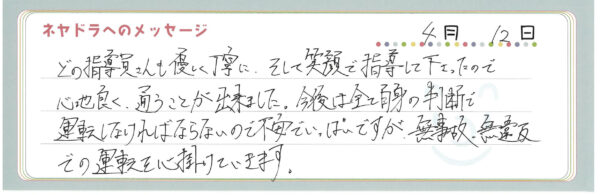 ネヤドラへのメッセージ
4月 12日
どの指導員さんも優しく丁寧に、そして笑顔で指導して下さったので
心地良く、通うことが出来ました。今後は全て自身の判断で
運転しなければならないので不安でいっぱいですが、無事故、無違反
での運転を心掛けていきます。